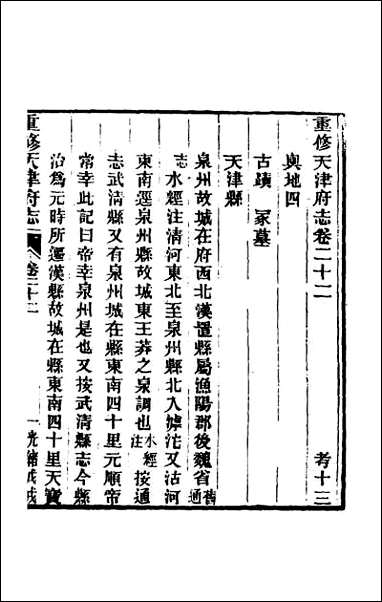 重修天津府志卷二十二　考十三
輿地四
古蹟　冢墓
天津縣
泉州故城在府西北漢置縣屬漁陽郡後魏省舊通
志水經注清河東北至泉州縣北入滹沱又沽河
東南逕泉州縣故城東王莽之泉調也水經注按通
志武清縣又有泉州城在縣東南四十里元順帝
常幸此記曰帝幸泉州是也又按武清縣志今縣
治爲元時所遷漢縣故城在縣東南四十里天寶
重修天津府志　卷二十二　一